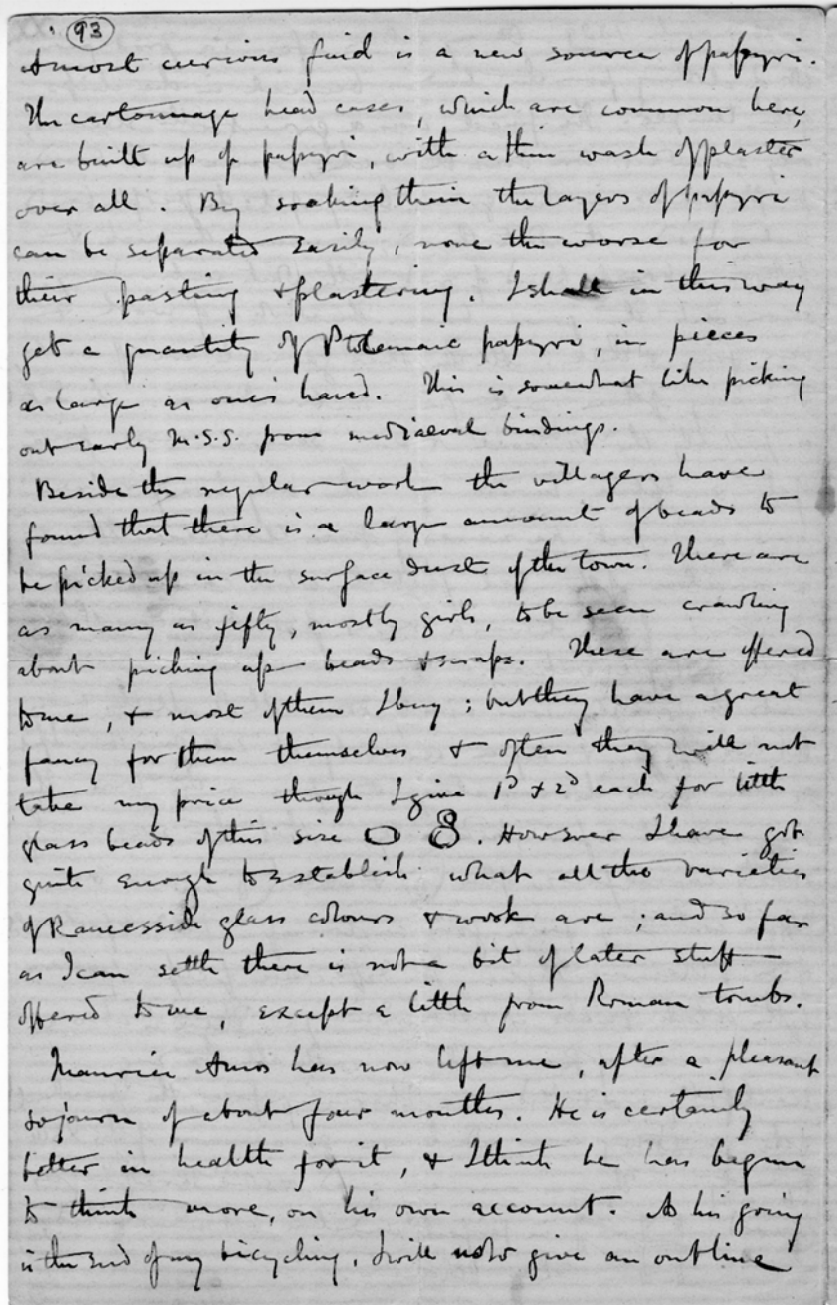 93
A most curious find is a new source of papyri.
The cartonnage head cases, which are common here,
are built up of papyri, with a thin wash of plaster
over all. By soaking them the layers of papyri
can be separated easily, none the worse for
their pasting & plastering. I shall in this way
get a quantity of Ptolemaic papyri, in pieces
as large as one's hand. This is somewhat like picking
out early M.S.S. from mediaeval bindings.
Beside the regular work the villagers have
found that there is a large amount of beads to
be picked up in the surface dust of the town. There are
as many as fifty, mostly girls, to be seen crawling
about picking up beads & scraps. These are offered
to me, & most of them I buy; but they have a great
fancy for them themselves & often they will not
take my price though I give 1D & 2D each for little
glass beads of this size. However I have got
quite enough to establish what all the varieties
of Ramesside glass colours & work are; and so far
as I can settle there is not a bit of later stuff
offered to me, except a little from Roman tombs.
Maurice Amos has now left me, after a pleasant
sojourn of about four months. He is certainly
better in health for it, & I think he has begun
to think more, on his own account. As his going
is the end of my bicycling, I will now give an outline